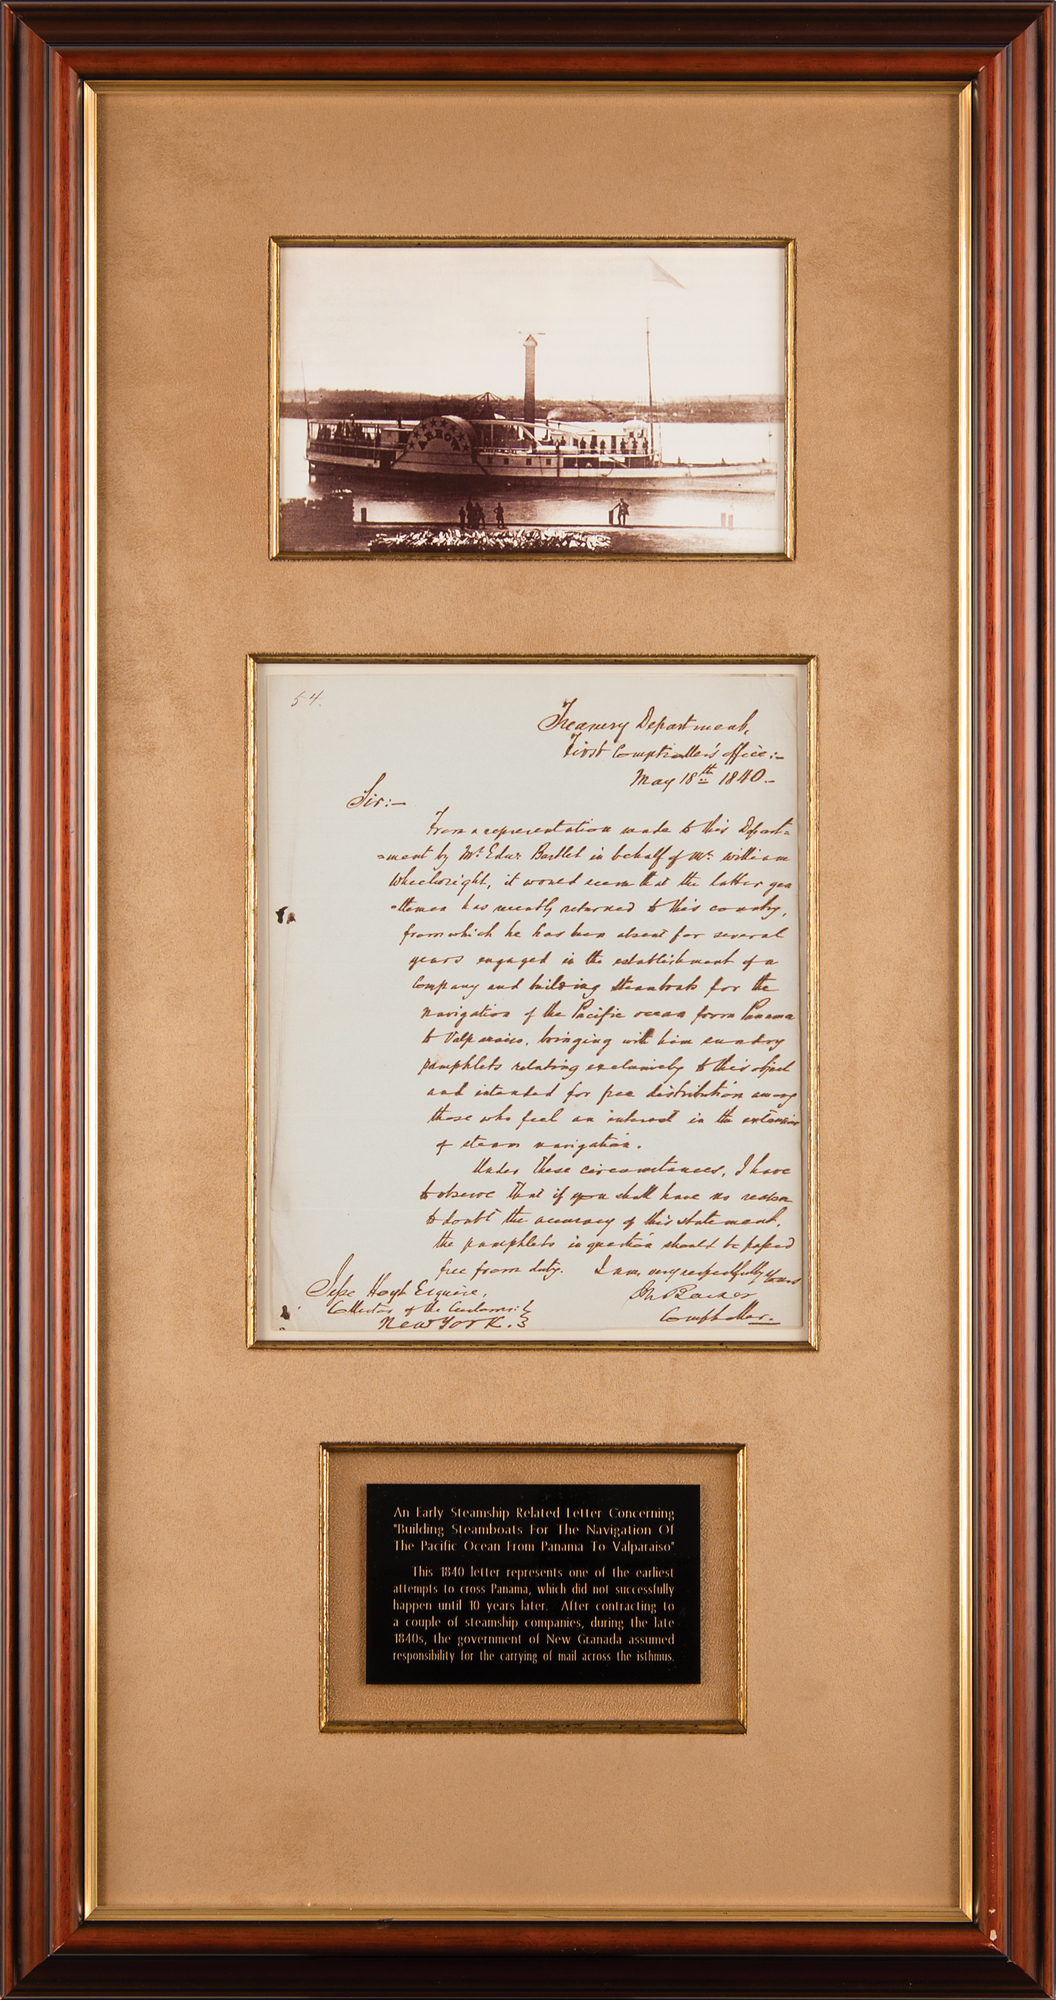 ARROW
54.
Treasury Department,
First Comptroller's office:-
May 18th 1840.-
Sir:-
From a representation made to this Depart=
=ment by Mr. Edw. Bartlet in behalf of Mr. William
Wheelwright, it would seem that the latter gen
=tleman has recently returned to this country,
from which he has been absent for several
years engaged in the establishment of a
Company and building steamboats for the
navigation of the Pacific ocean from Panama
to Valparaiso, bringing with him sundry
pamphlets relating exclusively to this object
and intended for free distribution among
those who feel an interest in the extension
of steam navigation.
Under these circumstances, I have
to observe that if you shall have no reason
to doubt the accuracy of this statement,
the pamphlets in question should be passed
free from duty. I am, very respectfully yours
Jesse Hoyt Esquire,
J. N. Barker
Collector of the Customs:
Comptroller.
New York.
An Early Steamship Related Letter Concerning
"Building Steamboats For The Navigation Of
The Pacific Ocean From Panama To Valparaiso"
This 1840 letter represents one of the earliest
attempts to cross Panama, which did not successfully
happen until 10 years later. After contracting to
a couple of steamship companies, during the late
1840s, the government of New Granada assumed
responsibility for the carrying of mail across the isthmus.